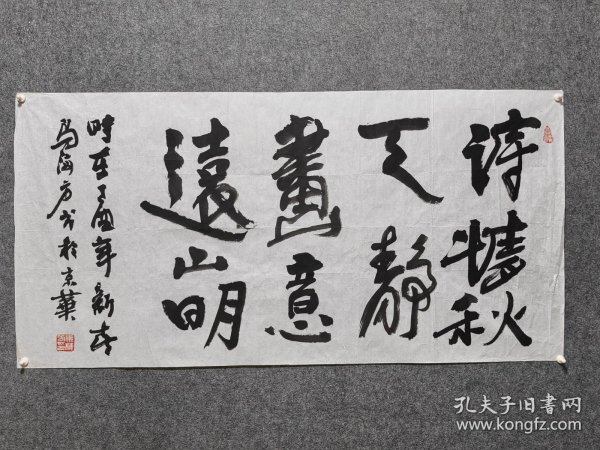 诗情秋
天静
画意
遠山明
時在丁酉年新春
馬海方书於京華
孔夫子旧書网
www.kongfz.com